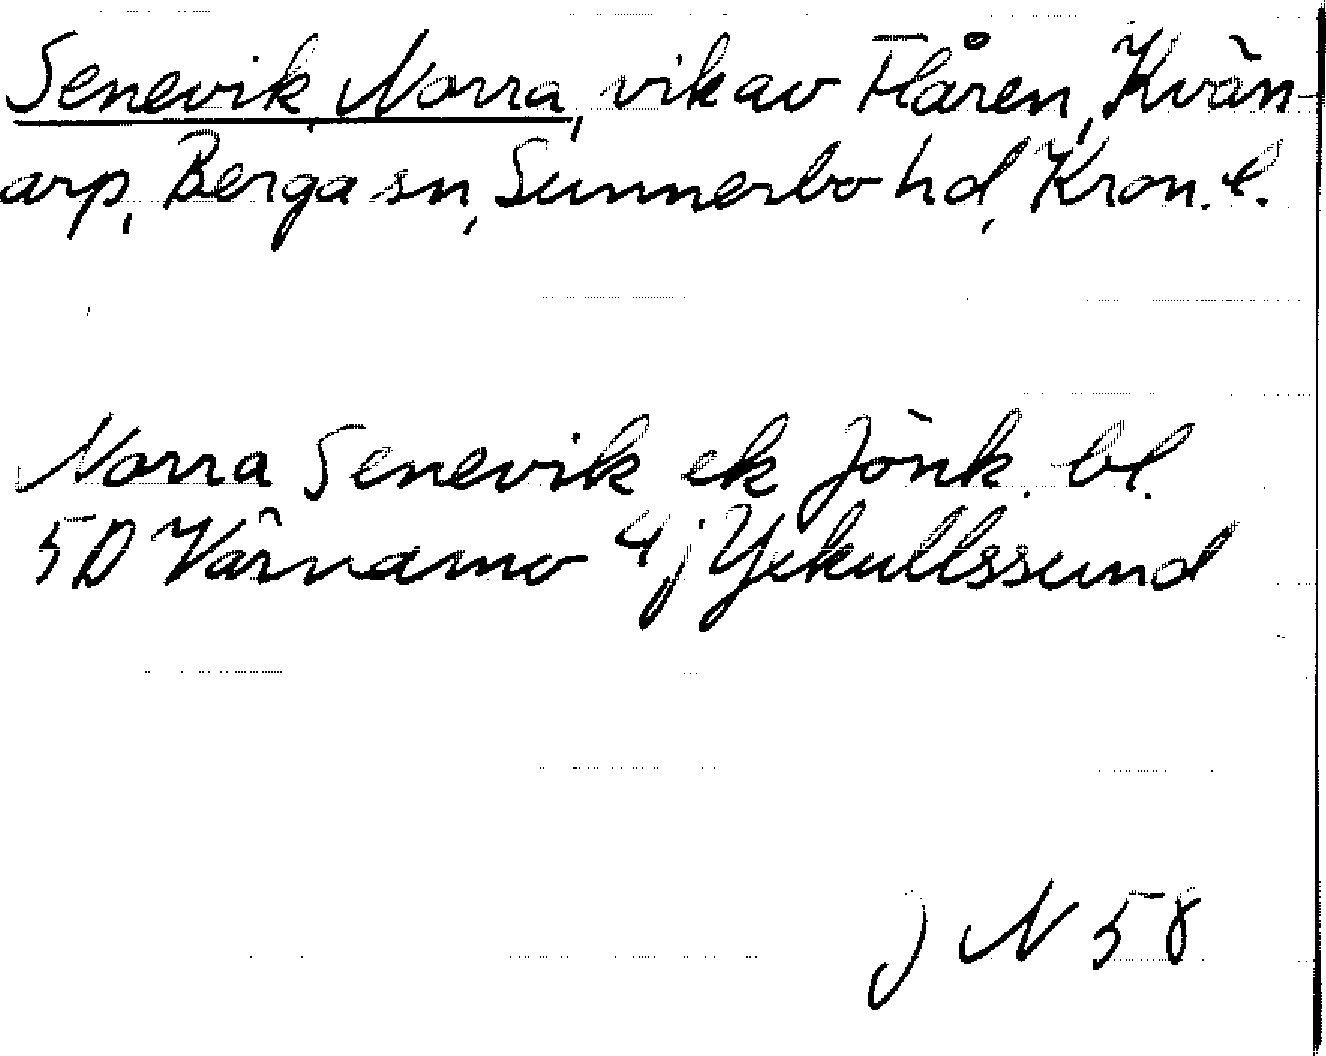 Senevik, Norra, vik av Flåren, Kvän-
arp, Berga sn, Sunnerbo hd, Kron. l.
Norra Senevik ek Jönk. bl.
5D Värnamo 4j Yxkullssund
J N 58